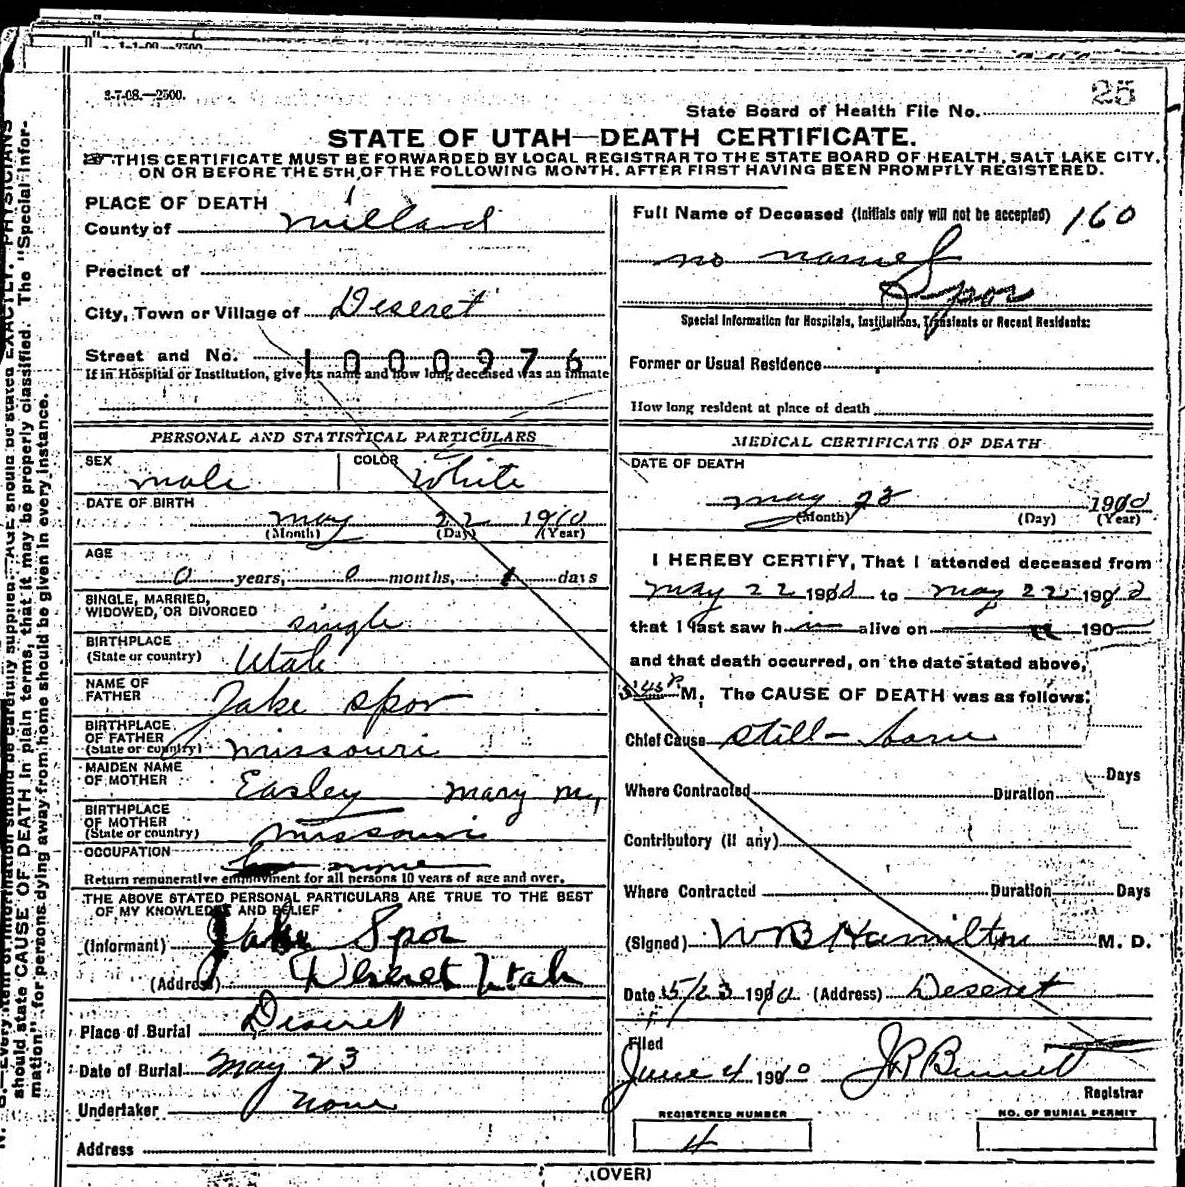 3-7-08.—2500.
25
State Board of Health File No.
STATE OF UTAH—DEATH CERTIFICATE.
THIS CERTIFICATE MUST BE FORWARDED BY LOCAL REGISTRAR TO THE STATE BOARD OF HEALTH, SALT LAKE CITY,
ON OR BEFORE THE 5TH OF THE FOLLOWING MONTH, AFTER FIRST HAVING BEEN PROMPTLY REGISTERED.
PLACE OF DEATH
County of Millard
Precinct of
City, Town or Village of Deseret
Street and No. 1000976
If in Hospital or Institution, give its name and how long deceased was an inmate
PERSONAL AND STATISTICAL PARTICULARS
SEX male COLOR White
DATE OF BIRTH
May 22 1910
(Month) (Day) (Year)
AGE
0 years, 0 months, 1 days
SINGLE, MARRIED,
WIDOWED, OR DIVORCED single
BIRTHPLACE
(State or country) Utah
NAME OF
FATHER Jake Spor
BIRTHPLACE
OF FATHER
(State or country) Missouri
MAIDEN NAME
OF MOTHER Easley Mary M,
BIRTHPLACE
OF MOTHER
(State or country) Missouri
OCCUPATION none
Return remunerative employment for all persons 10 years of age and over.
THE ABOVE STATED PERSONAL PARTICULARS ARE TRUE TO THE BEST
OF MY KNOWLEDGE AND BELIEF
(Informant) Jake Spor
(Address) Deseret Utah
Place of Burial Deseret
Date of Burial May 23
Undertaker None
Address
Full Name of Deceased (Initials only will not be accepted) 160
no name
Spor
Special Information for Hospitals, Institutions, Transients or Recent Residents:
Former or Usual Residence
How long resident at place of death
MEDICAL CERTIFICATE OF DEATH
DATE OF DEATH
May 23 1910
(Month) (Day) (Year)
I HEREBY CERTIFY, That I attended deceased from
May 22 1910 to May 22 1910
that I last saw him alive on 190
and that death occurred, on the date stated above,
M, The CAUSE OF DEATH was as follows:
Chief Cause Still-born
Days
Where Contracted Duration
Contributory (if any)
Where Contracted Duration Days
(Signed) W B Hamilton M. D.
Date 5/23 1910 (Address) Deseret
Filed
June 4 1910 J R Bennett
Registrar
REGISTERED NUMBER NO. OF BURIAL PERMIT
4
(OVER)
should state CAUSE OF DEATH in plain terms, that it may be properly classified. The "Special Infor-
mation" for persons dying away from home should be given in every instance.